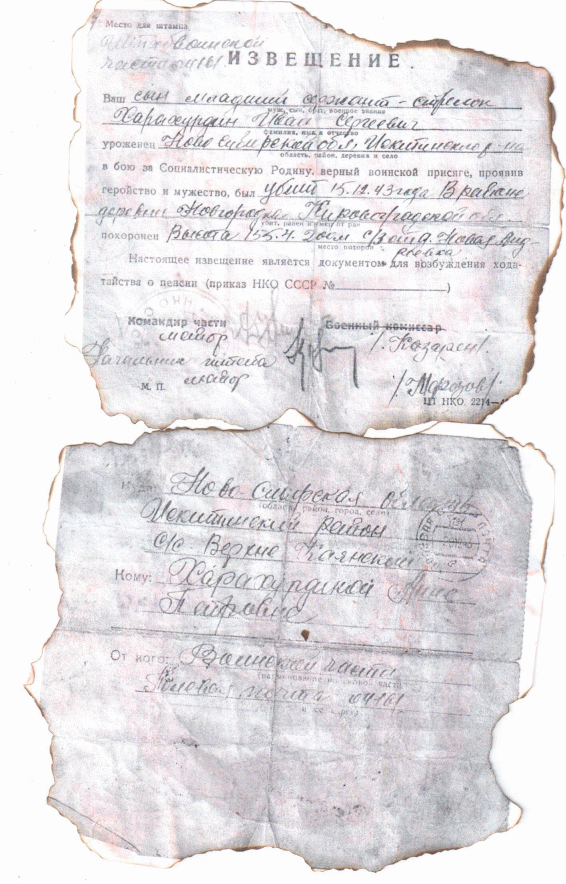 Место для штампа
Штамп воинской
части 04161
ИЗВЕЩЕНИЕ.
Ваш сын младший сержант-стрелок
муж, сын, брат, военное звание
Харахурдин Иван Сергеевич
фамилия, имя и отчество
уроженец Ново-Сибирской обл. Искитимского р-на
область, район, деревня и село
в бою за Социалистическую Родину, верный воинской присяге, проявив
геройство и мужество, был убит 15.12.43 года В районе
деревни Новгородка Кировоградской обл.
похоронен Высота 155.4.
место похорон
Настоящее извещение является документом для возбуждения хода-
тайства о пенсии (приказ НКО СССР №)
Командир части Военный комиссар
майор /Козарен/.
Начальник штаба
майор /Морозов/
М. П.
НКО. 2214
Куда: Ново-Сибирская область
(область, район, город, село)
Искитимский район
с/с Верхно Каянский
Кому: Харахурдиной Анне
Петровне
От кого: Воинской части
Полевая почта 04161